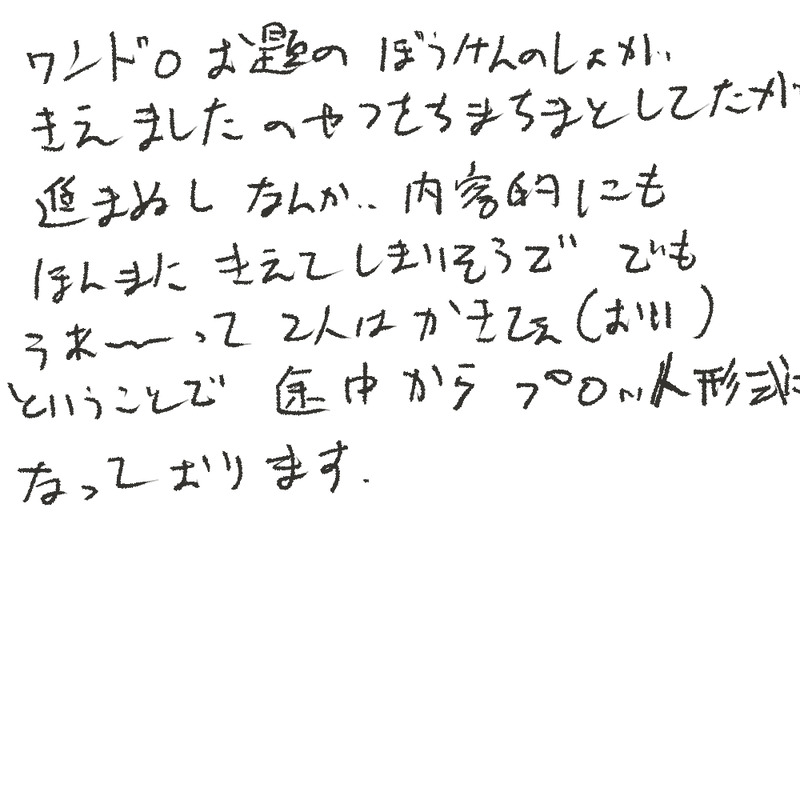 ワンドロお題の ぼうけんのしょが
きえました のやつをちまちまとしてたが
進まぬし なんか、内容的にも
ほんまに きえてしまいそうで でも
うお〜〜って 2人は かきてぇ(おい)
ということで 途中から プロット形式に
なっております.